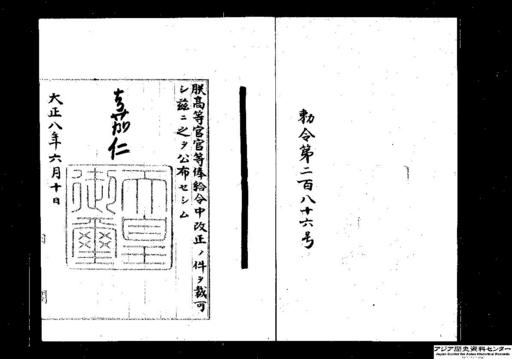 勅令第二百八十六号
朕高等官官等俸給令中改正ノ件ヲ裁可
シ茲ニ之ヲ公布セシム
嘉仁
天皇御璽
大正八年六月十日
内 閣
アジア歴史資料センター
Japan Center for Asian Historical Records